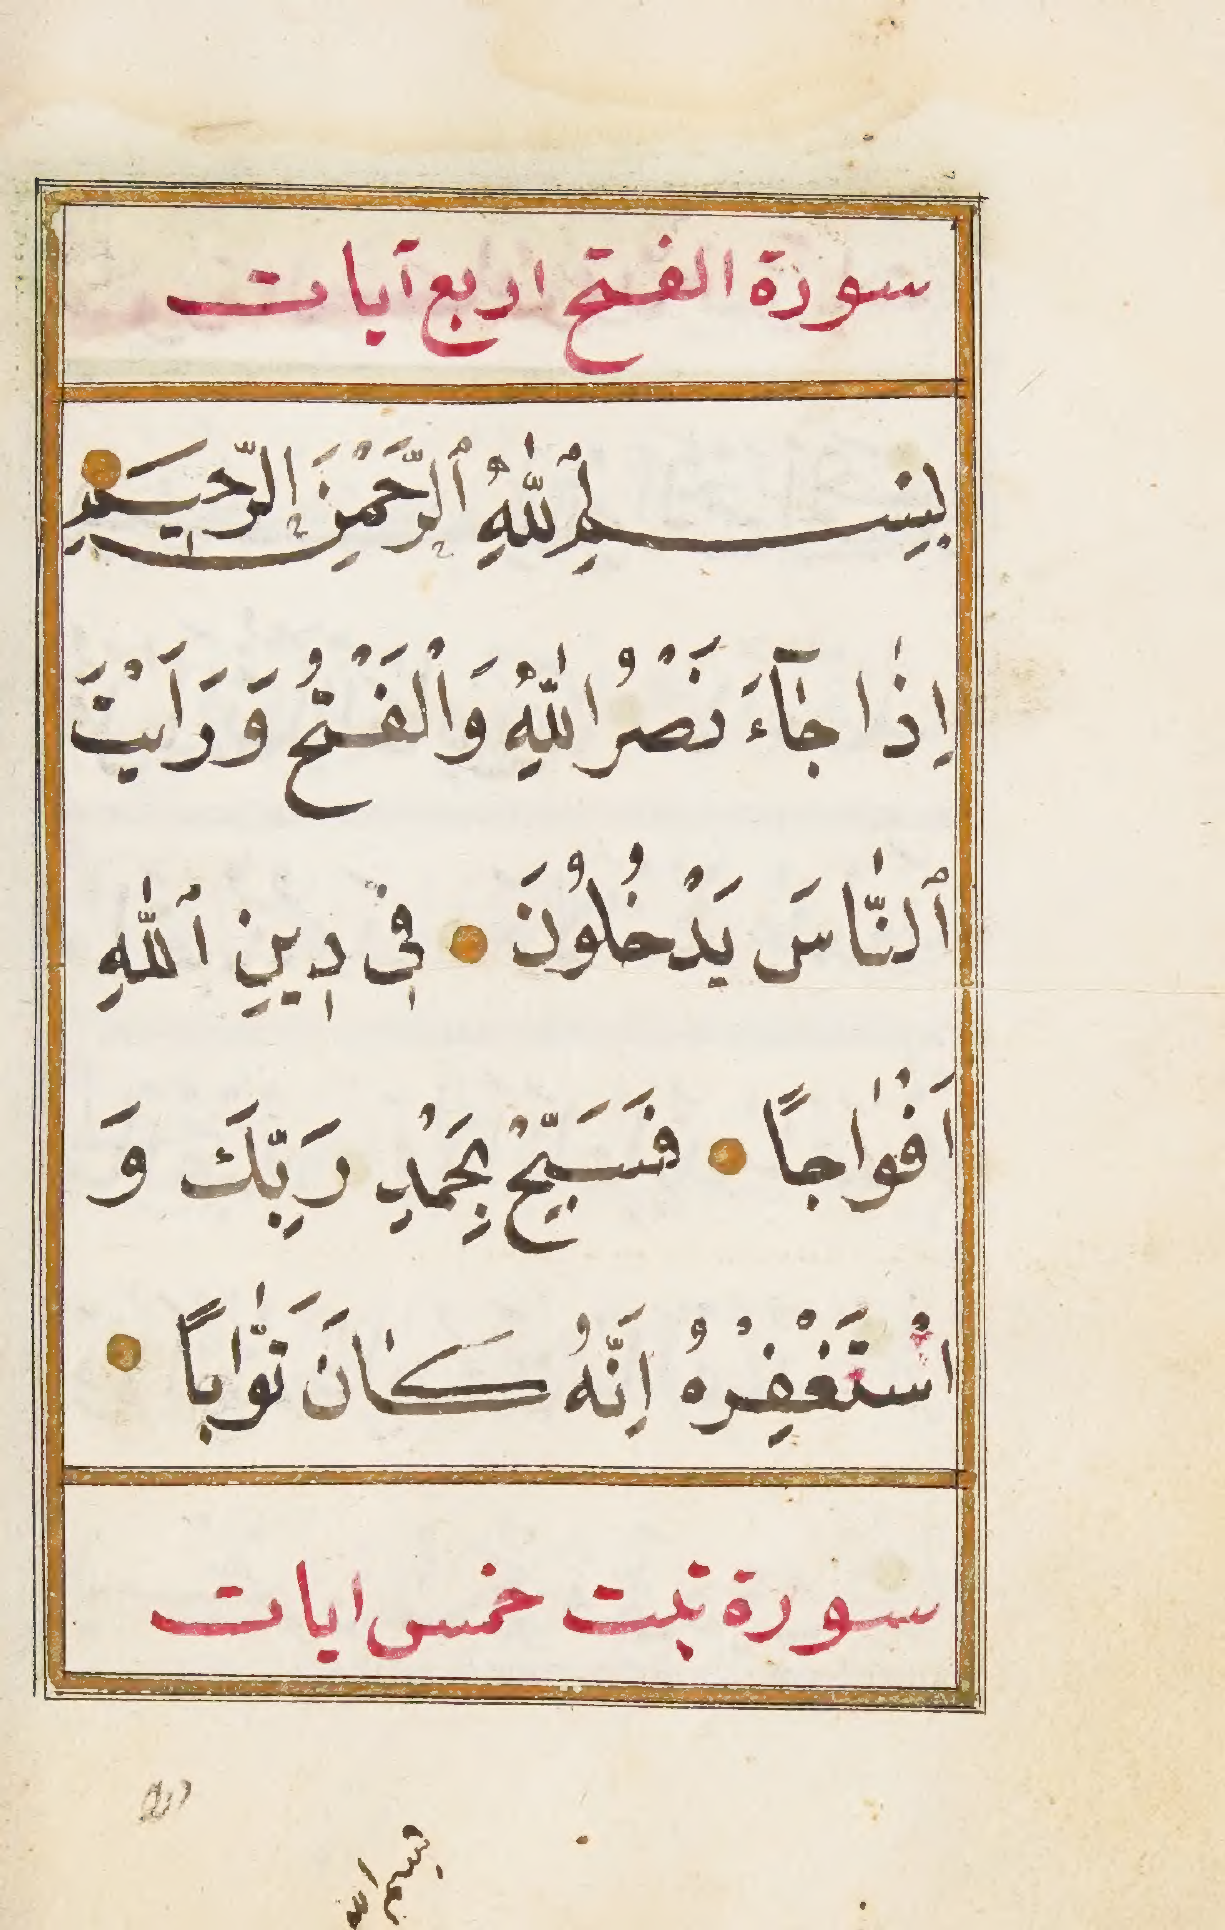 سورة الفتح اربع آيات
بِسْــمِ ٱللّٰهِ ٱلرَّحْمٰنِ الرَّحِيـمِ
اِذٰا جٰٓاءَ نَصْرُ اللّٰهِ وَالْفَتْحُ وَرَاَيْتَ
ٱلنّٰاسَ يَدْخُلُونَ فِى دِينِ ٱللّٰهِ
اَفْوٰاجاً فَسَبِّحْ بِحَمْدِ رَبِّكَ وَ
اسْتَغْفِرْهُ اِنَّهُ كٰانَ تَوّٰاباً
سورة تبت خمس ايات
بسم الله